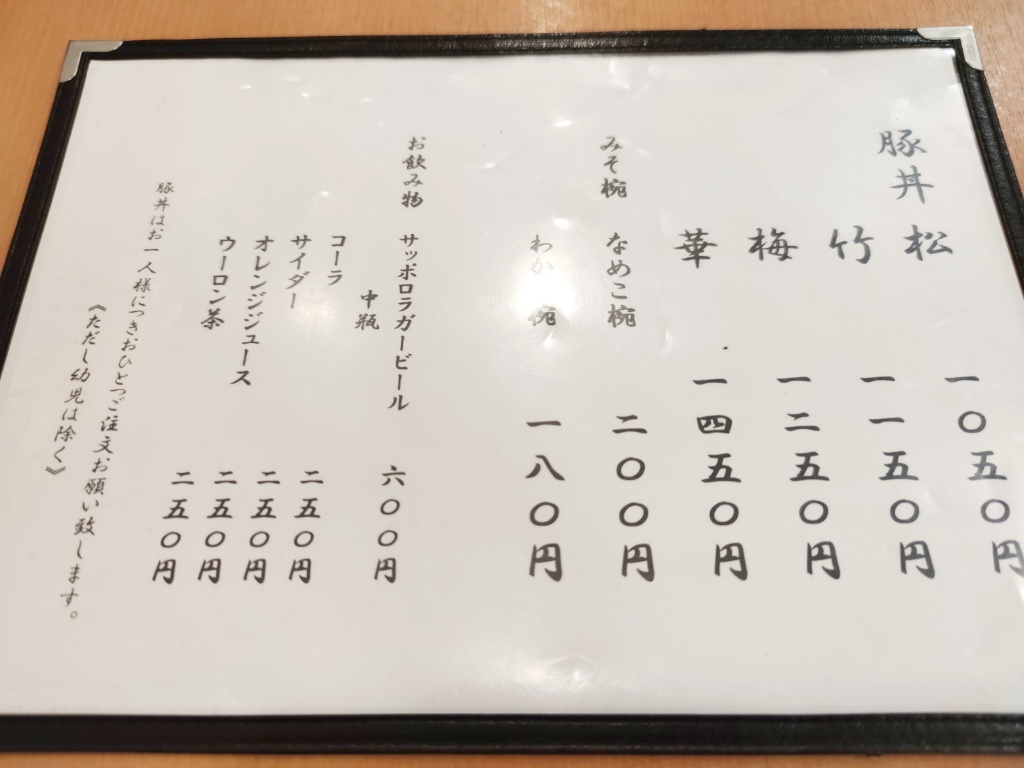 豚丼
松 一〇五〇円
竹 一一五〇円
梅 一二五〇円
華 一四五〇円
みそ椀 なめこ椀 二〇〇円
わか 椀 一八〇円
お飲み物 サッポロラガービール
中瓶 六〇〇円
コーラ 二五〇円
サイダー 二五〇円
オレンジジュース 二五〇円
ウーロン茶 二五〇円
豚丼はお一人様につきおひとつご注文お願い致します。
《ただし幼児は除く》